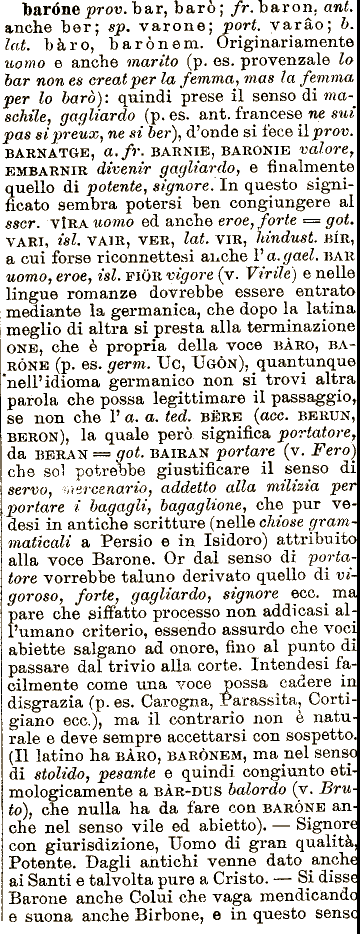 baróne prov. bar, barò; fr. baron, ant.
anche ber; sp. varone; port. varâo; b.
lat. bàro, barònem. Originariamente
uomo e anche marito (p. es. provenzale lo
bar non es creat per la femma, mas la femma
per lo barò): quindi prese il senso di ma-
schile, gagliardo (p. es. ant. francese ne sui
pas si preux, ne si ber), d'onde si fece il prov.
BARNATGE, a. fr. BARNIE, BARONIE valore,
EMBARNIR divenir gagliardo, e finalmente
quello di potente, signore. In questo signi-
ficato sembra potersi ben congiungere al
sscr. VÎRA uomo ed anche eroe, forte = got.
VARI, isl. VAIR, VER, lat. VIR, hindust. BÍR,
a cui forse riconnettesi anche l'a. gael. BAR
uomo, eroe, isl. FIÖR vigore (v. Virile) e nelle
lingue romanze dovrebbe essere entrato
mediante la germanica, che dopo la latina
meglio di altra si presta alla terminazione
ONE, che è propria della voce BÀRO, BA-
RÓNE (p. es. germ. UC, UGÓN), quantunque
nell'idioma germanico non si trovi altra
parola che possa legittimare il passaggio,
se non che l'a. a. ted. BËRE (acc. BERUN,
BERON), la quale però significa portatore,
da BERAN = got. BAIRAN portare (v. Fero)
che sol potrebbe giustificare il senso di
servo, mercenario, addetto alla milizia per
portare i bagagli, bagaglione, che pur ve-
desi in antiche scritture (nelle chiose gram-
maticali a Persio e in Isidoro) attribuito
alla voce Barone. Or dal senso di porta-
tore vorrebbe taluno derivato quello di vi-
goroso, forte, gagliardo, signore ecc. ma
pare che siffatto processo non addicasi al-
l'umano criterio, essendo assurdo che voci
abiette salgano ad onore, fino al punto di
passare dal trivio alla corte. Intendesi fa-
cilmente come una voce possa cadere in
disgrazia (p. es. Carogna, Parassita, Corti-
giano ecc.), ma il contrario non è natu-
rale e deve sempre accettarsi con sospetto.
(Il latino ha BÀRO, BARÒNEM, ma nel senso
di stolido, pesante e quindi congiunto eti-
mologicamente a BÀR-DUS balordo (v. Bru-
to), che nulla ha da fare con BARÓNE an-
che nel senso vile ed abietto). — Signore
con giurisdizione, Uomo di gran qualità,
Potente. Dagli antichi venne dato anche
ai Santi e talvolta pure a Cristo. — Si disse
Barone anche Colui che vaga mendicando
e suona anche Birbone, e in questo senso